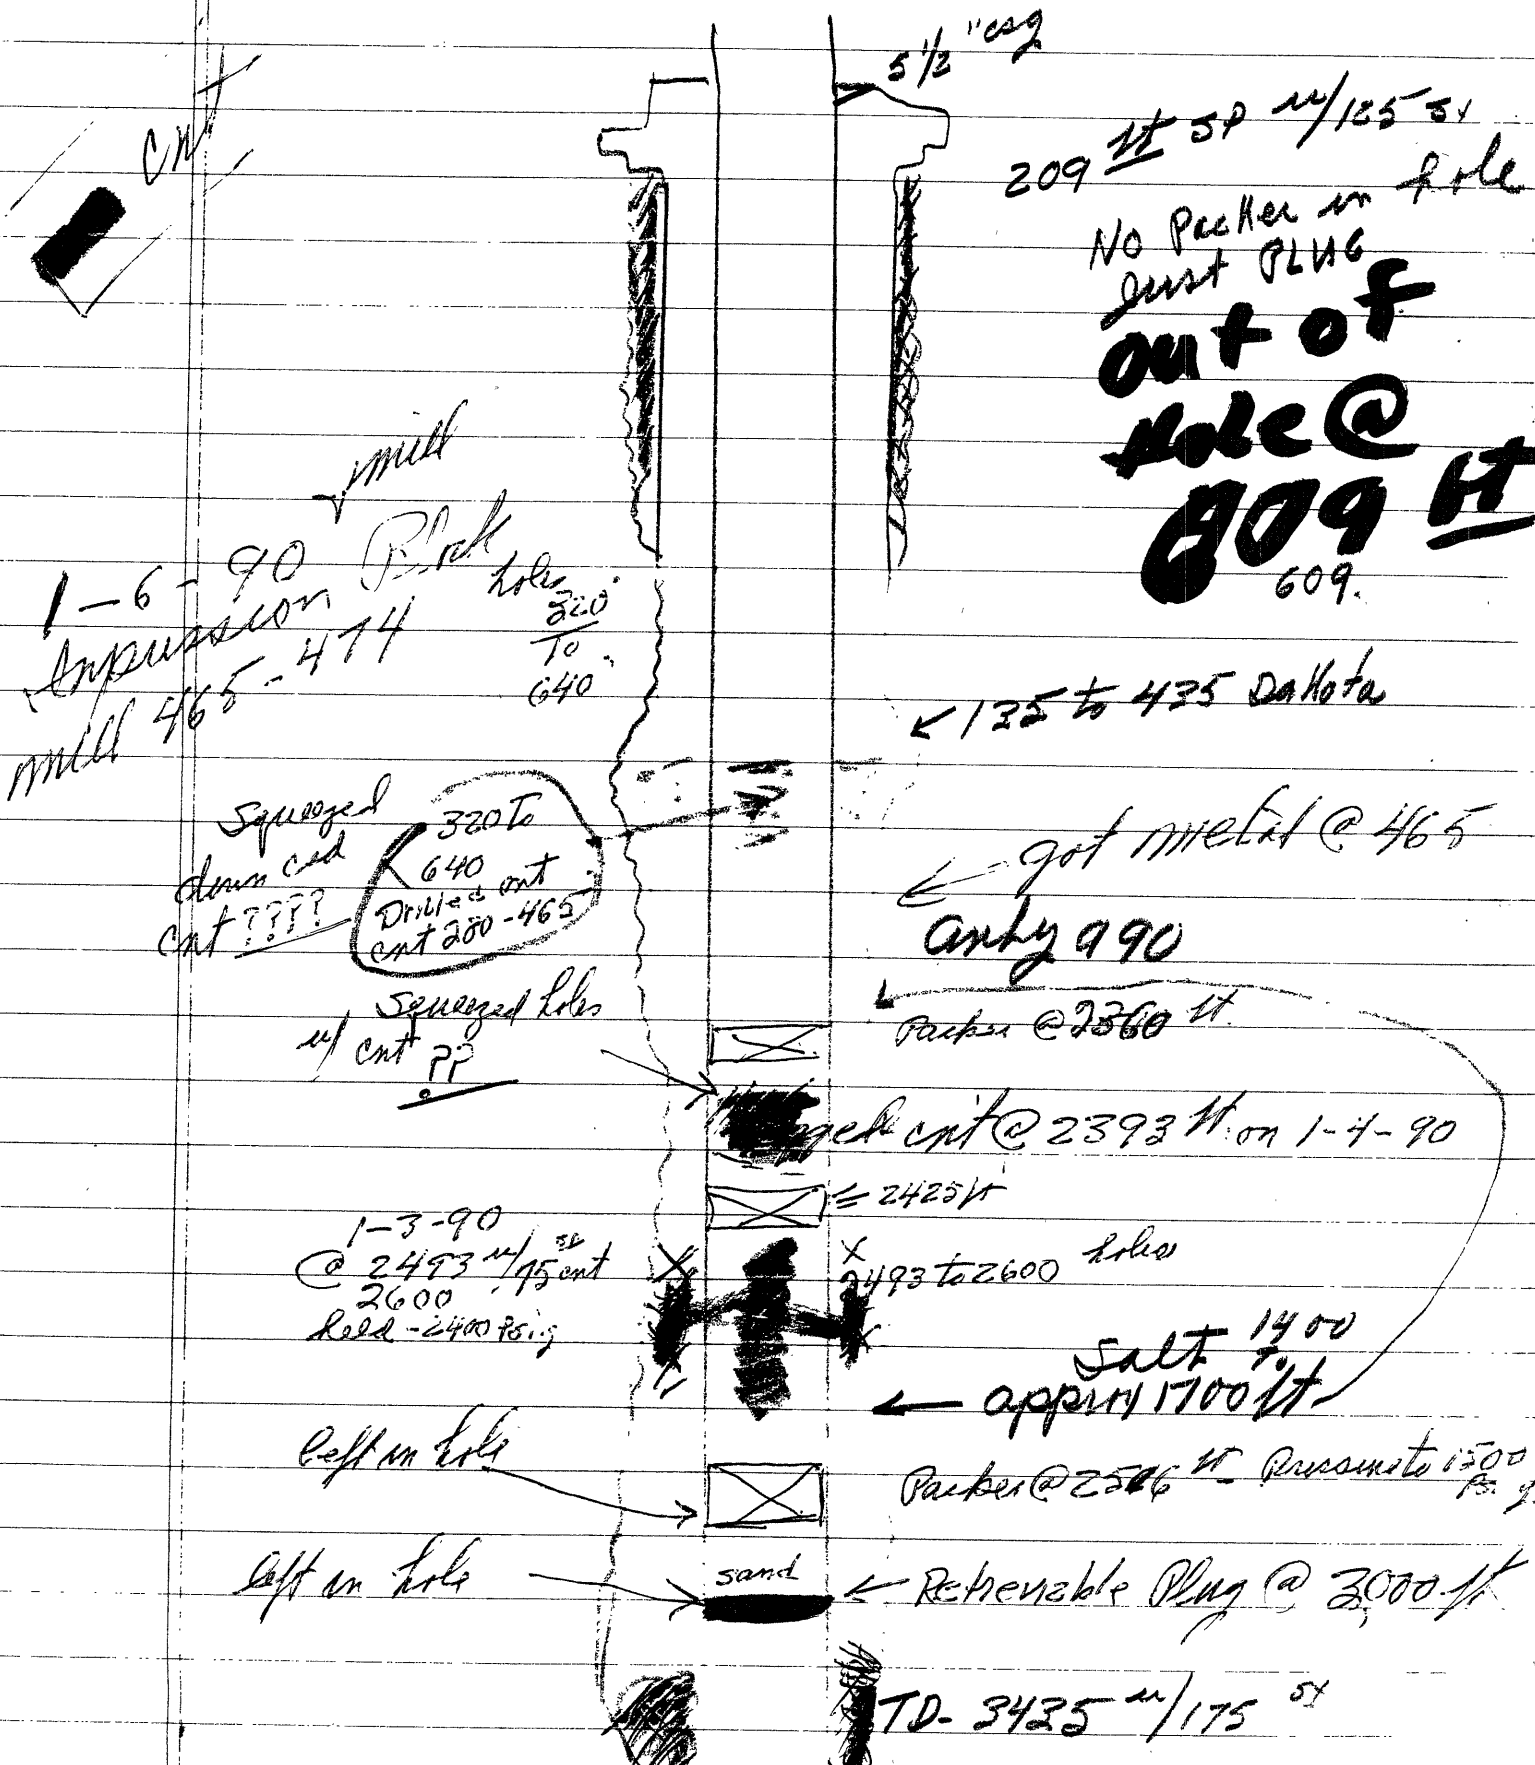 5 1/2" csg
cmt
209 ft SP w/125 sx
No Packer in hole
Just PLUG
out of
Hole @
609 ft
609.
✓mill
1-6-90
Impression Block
mill 465-474
holes
320'
To
640'
← 135 to 435 Dakota
Squeezed
down csd
cmt ????
320 To
640
Drilled out
cmt 280-465
← got metal @ 465
Anhy 990
Squeezed holes
w/ cmt ??
Packer @ 2360 ft.
cmt @ 2393 ft. on 1-4-90
← 2425 ft
1-3-90
@ 2493 w/75 sx cmt
2600
held - 2400 Psig
2493 to 2600 holes
Salt 1400
To
← approx 1700 ft
left in hole
Packer @ 2506 ft - Pressure to 1500
Psig
left in hole
sand
← Retrievable Plug @ 3000 ft
TD- 3435 w/175 sx